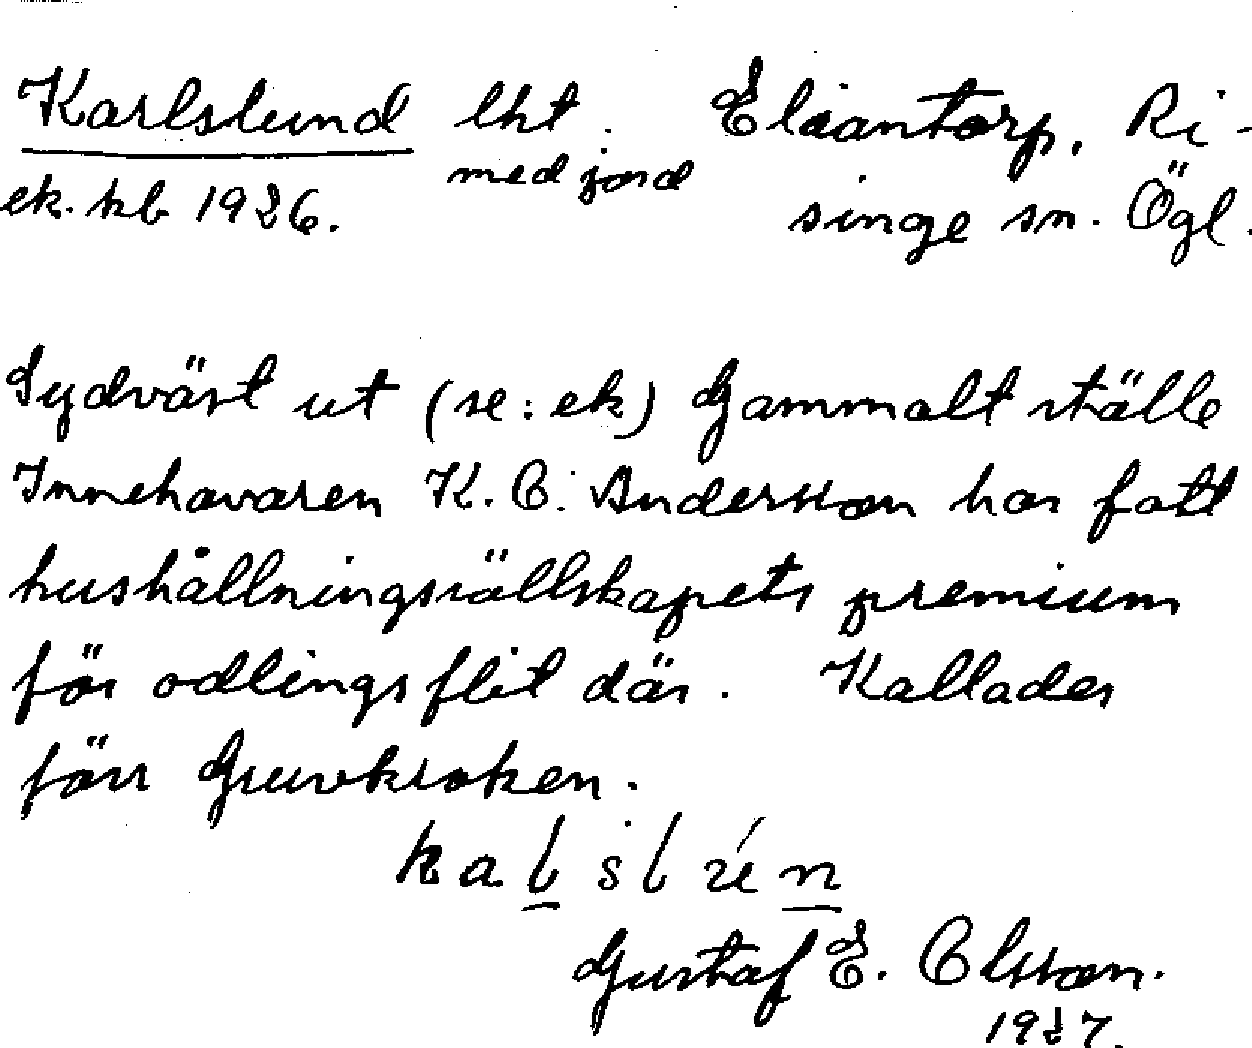 Karlslund lht. Eliantorp, Ri-
ek. kb 1926. med jord singe sn. Ögl.
Sydväst ut (se: ek) Gammalt ställe
Innehavaren K. C. Andersson har fått
hushållningssällskapets premium
för odlingsflit där. Kallades
förr Gruvkroken.
Gustaf E. Olsson.
1927.